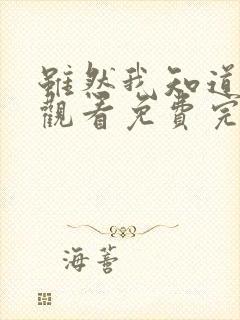 雖然我知道
觀看免費完
海薈